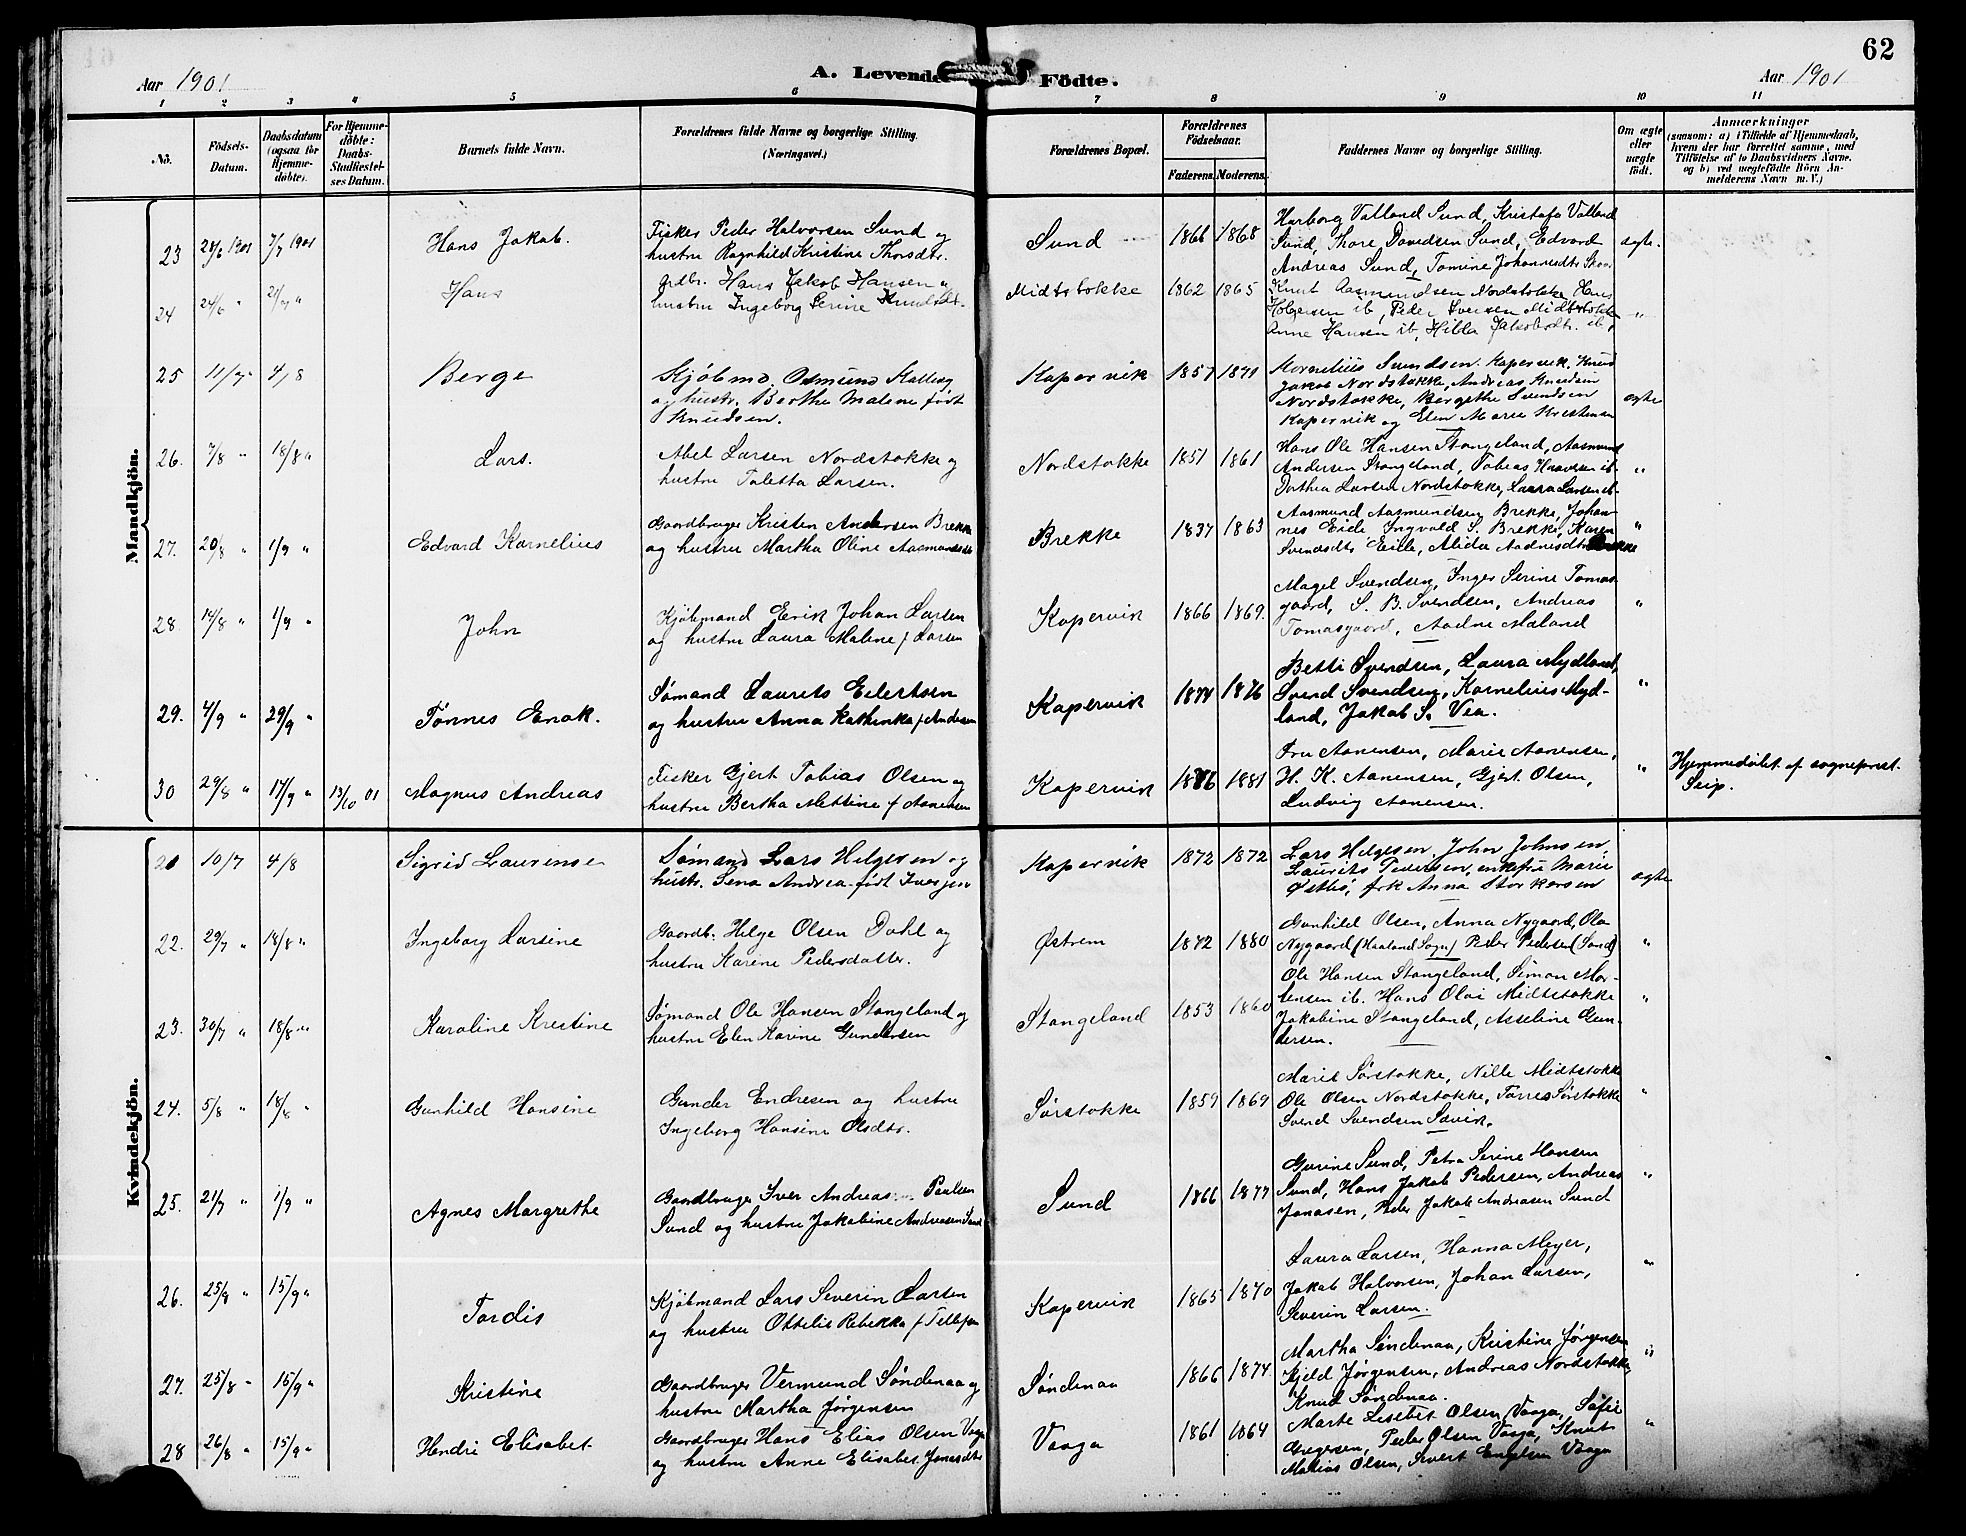 62
Aar 1901
A. Levende Födte.
Aar 1901
1 2 3 4 5 6 7 8 9 10 11
No. | Födsels-Datum. | Daabsdatum (ogsaa for Hjemmedöbte). | For Hjemmedöbte: Daabs-Stadfæstelses Datum. | Barnets fulde Navn. | Forældrenes fulde Navne og borgerlige Stilling. (Næringsvei.) | Forældrenes Bopæl. | Forældrenes Födselsaar. Faderens. Moderens. | Faddernes Navne og borgerlige Stilling. | Om ægte eller uægte födt. | Anmærkninger (saasom: a) i Tilfælde af Hjemmedaab, hvem der har forrettet samme, med Tilföielse af to Daabsvidners Navne, og b) ved uægtefödte Börn Anmelderens Navn m. V.)
Mandkjön.
23 | 24/6 1901 | 7/7 1901 | Hans Jakob. | Fisker Peder Halvorsen Sund og
hustru Ragnhild Kristine Thorsdtr. | Sund | 1866 | 1868 | Harborg Valland Sund, Kristofa Valland
Sund, Thore Davidsen Sund, Edvard
Andreas Sund, Tomine Johannesdtr | ægte.
24 | 24/6 " | 21/7 " | Hans | Gdbr. Hans Jakob Hansen og
hustru Ingeborg Serine Knudsdt. | Midtstokke | 1862 | 1865 | Knut Aasmundsen Nordstokke, Hans
Holgersen ib, Peder Iversen Midtstokke
Anne Hansen ib, Hilda Jakobsdtr. ib, | "
25 | 11/7 " | 4/8 | Berge | Kjøbmd. Osmund
og hustr. Berthe Malene født
Knudsen. | Kapervik | 1857 | 1871 | Kornelius Svendsen Kapervik, Knud
Jakob Nordstokke, Andreas Knudsen
Nordstokke, Bergethe Svendsen
Kapervik og Elen Marie Kristensen | ægte
26. | 7/8 " | 18/8 " | Lars. | Abel Larsen Nordstokke og
hustru Taletta Larsen. | Nordstokke | 1851 | 1861 | Hans Ole Hansen Stangeland, Aasmund
Andersen Stangeland, Tobias ib.
Dorthea Larsen Nordstokke, Laura Larsen ib. | "
27. | 20/8 " | 1/9 " | Edvard Kornelius | Gaardbruger Kristen Andersen Brekke
og hustru Martha Oline Aasmundsdtr | Brekke | 1837 | 1863 | Aasmund Aasmundsen Brekke, Johan-
nes Eide, Ingvald S. Brekke, Karen
Svendsdtr Eide, Alida Aadnesdtr Brekke | "
28 | 14/8 " | 1/9 " | John | Kjøbmand Erik Johan Larsen
og hustru Laura Malene f Larsen | Kapervik | 1866 | 1869. | Magel Svendsen, Inger Serine Tomas-
gaard, S. B. Svendsen, Andreas
Tomasgaard, Aadne Maland | "
29. | 4/9 " | 29/9 " | Tønnes Enok. | Sømand Laurits Eilertsen
og hustru Anna Kathinka f Andersen | Kapervik | 1874 | 1876 | Betti Svendsen, Laura Mydland,
Svend Svendsen, Kornelius Myd-
land, Jakob S. Vea. | "
30 | 29/8 " | 17/9 " | 13/10 01 | Magnus Andreas | Fisker Gjert Tobias Olsen og
hustru Bertha Mettine f Aanensen | Kapervik | 1876 | 1881 | Fru Aanensen, Marie Aanensen,
H. K. Aanensen, Gjert Olsen,
Ludvig Aanensen. | " | Hjemmedøbt af sogneprest
Seip.
Kvindekjön.
21 | 10/7 | 4/8 | Sigrid Laurense | Sømand Lars Helgesen og
hustr. Sena Andrea født Iversen | Kapervik | 1872 | 1872 | Lars Helgesen, John Johnsen,
Laurits Pedersen, enkefru Marie
Østbø, frk Anna Storkersen | ægte
22. | 29/7 | 18/8 " | Ingeborg Larsine | Gaardb. Helge Olsen Dahl og
hustru Karine Pedersdatter. | Østrem | 1872 | 1880 | Gunhild Olsen, Anna Nygaard, Ola
Nygaard (Haaland Sogn) Peder Pedersen (Sund) | "
23. | 30/7 " | 18/8 " | Karoline Kristine | Sømand Ole Hansen Stangeland og
hustru Elen Karine Gundersen | Stangeland | 1853 | 1860 | Ole Hansen Stangeland, Simon Mor-
tensen ib. Hans Olai Midtstokke
Jakobine Stangeland, Asseline Gun-
dersen. | "
24. | 5/8 " | 18/8 " | Gunhild Hansine | Gunder Endresen og hustru
Ingeborg Hansine Olsdtr. | Sørstokke | 1859 | 1869 | Marie Sørstokke, Nille Midtstokke
Ole Olsen Nordstokke, Tørres Sørstokke
Svend Svendsen Sævik. | "
25. | 21/7 " | 1/9 " | Agnes Margrethe | Gaardbruger Iver Andreas Paulsen
Sund og hustru Jakobine Andreasen Sund | Sund | 1866 | 1877 | Gurine Sund, Petra Serine Hansen
Sund, Hans Jakob Pedersen, Andreas
Jonasen, Peder Jakob Andreasen Sund | "
26. | 25/8 " | 15/9 " | Tordis | Kjøbmand Lars Severin Larsen
og hustru Ottelie Rebekka f Tellefsen | Kapervik | 1865 | 1870 | Laura Larsen, Hanna Meyer,
Jakob Halvorsen, Johan Larsen,
Severin Larsen. | "
27. | 25/8 " | 15/9 " | Kristine | Gaardbruger Vermund Søndenaa og
hustru Martha Jørgensen | Søndenaa | 1866 | 1874 | Martha Søndenaa, Kristine Jørgensen
Kjeld Jørgensen, Andreas Nordstokke,
Knud Søndenaa. | "
28 | 26/8 " | 15/9 " | Hendri Elisabet | Gaardbruger Hans Elias Olsen Vaaga
og hustru Anne Elisabet Jonasdtr | Vaaga | 1861 | 1864 | Marte Lisebet Olsen Vaaga, Sofie
Gregersen, Peder Olsen Vaaga, Knut
Matias Olsen, Sivert Engelsen Vaaga | "